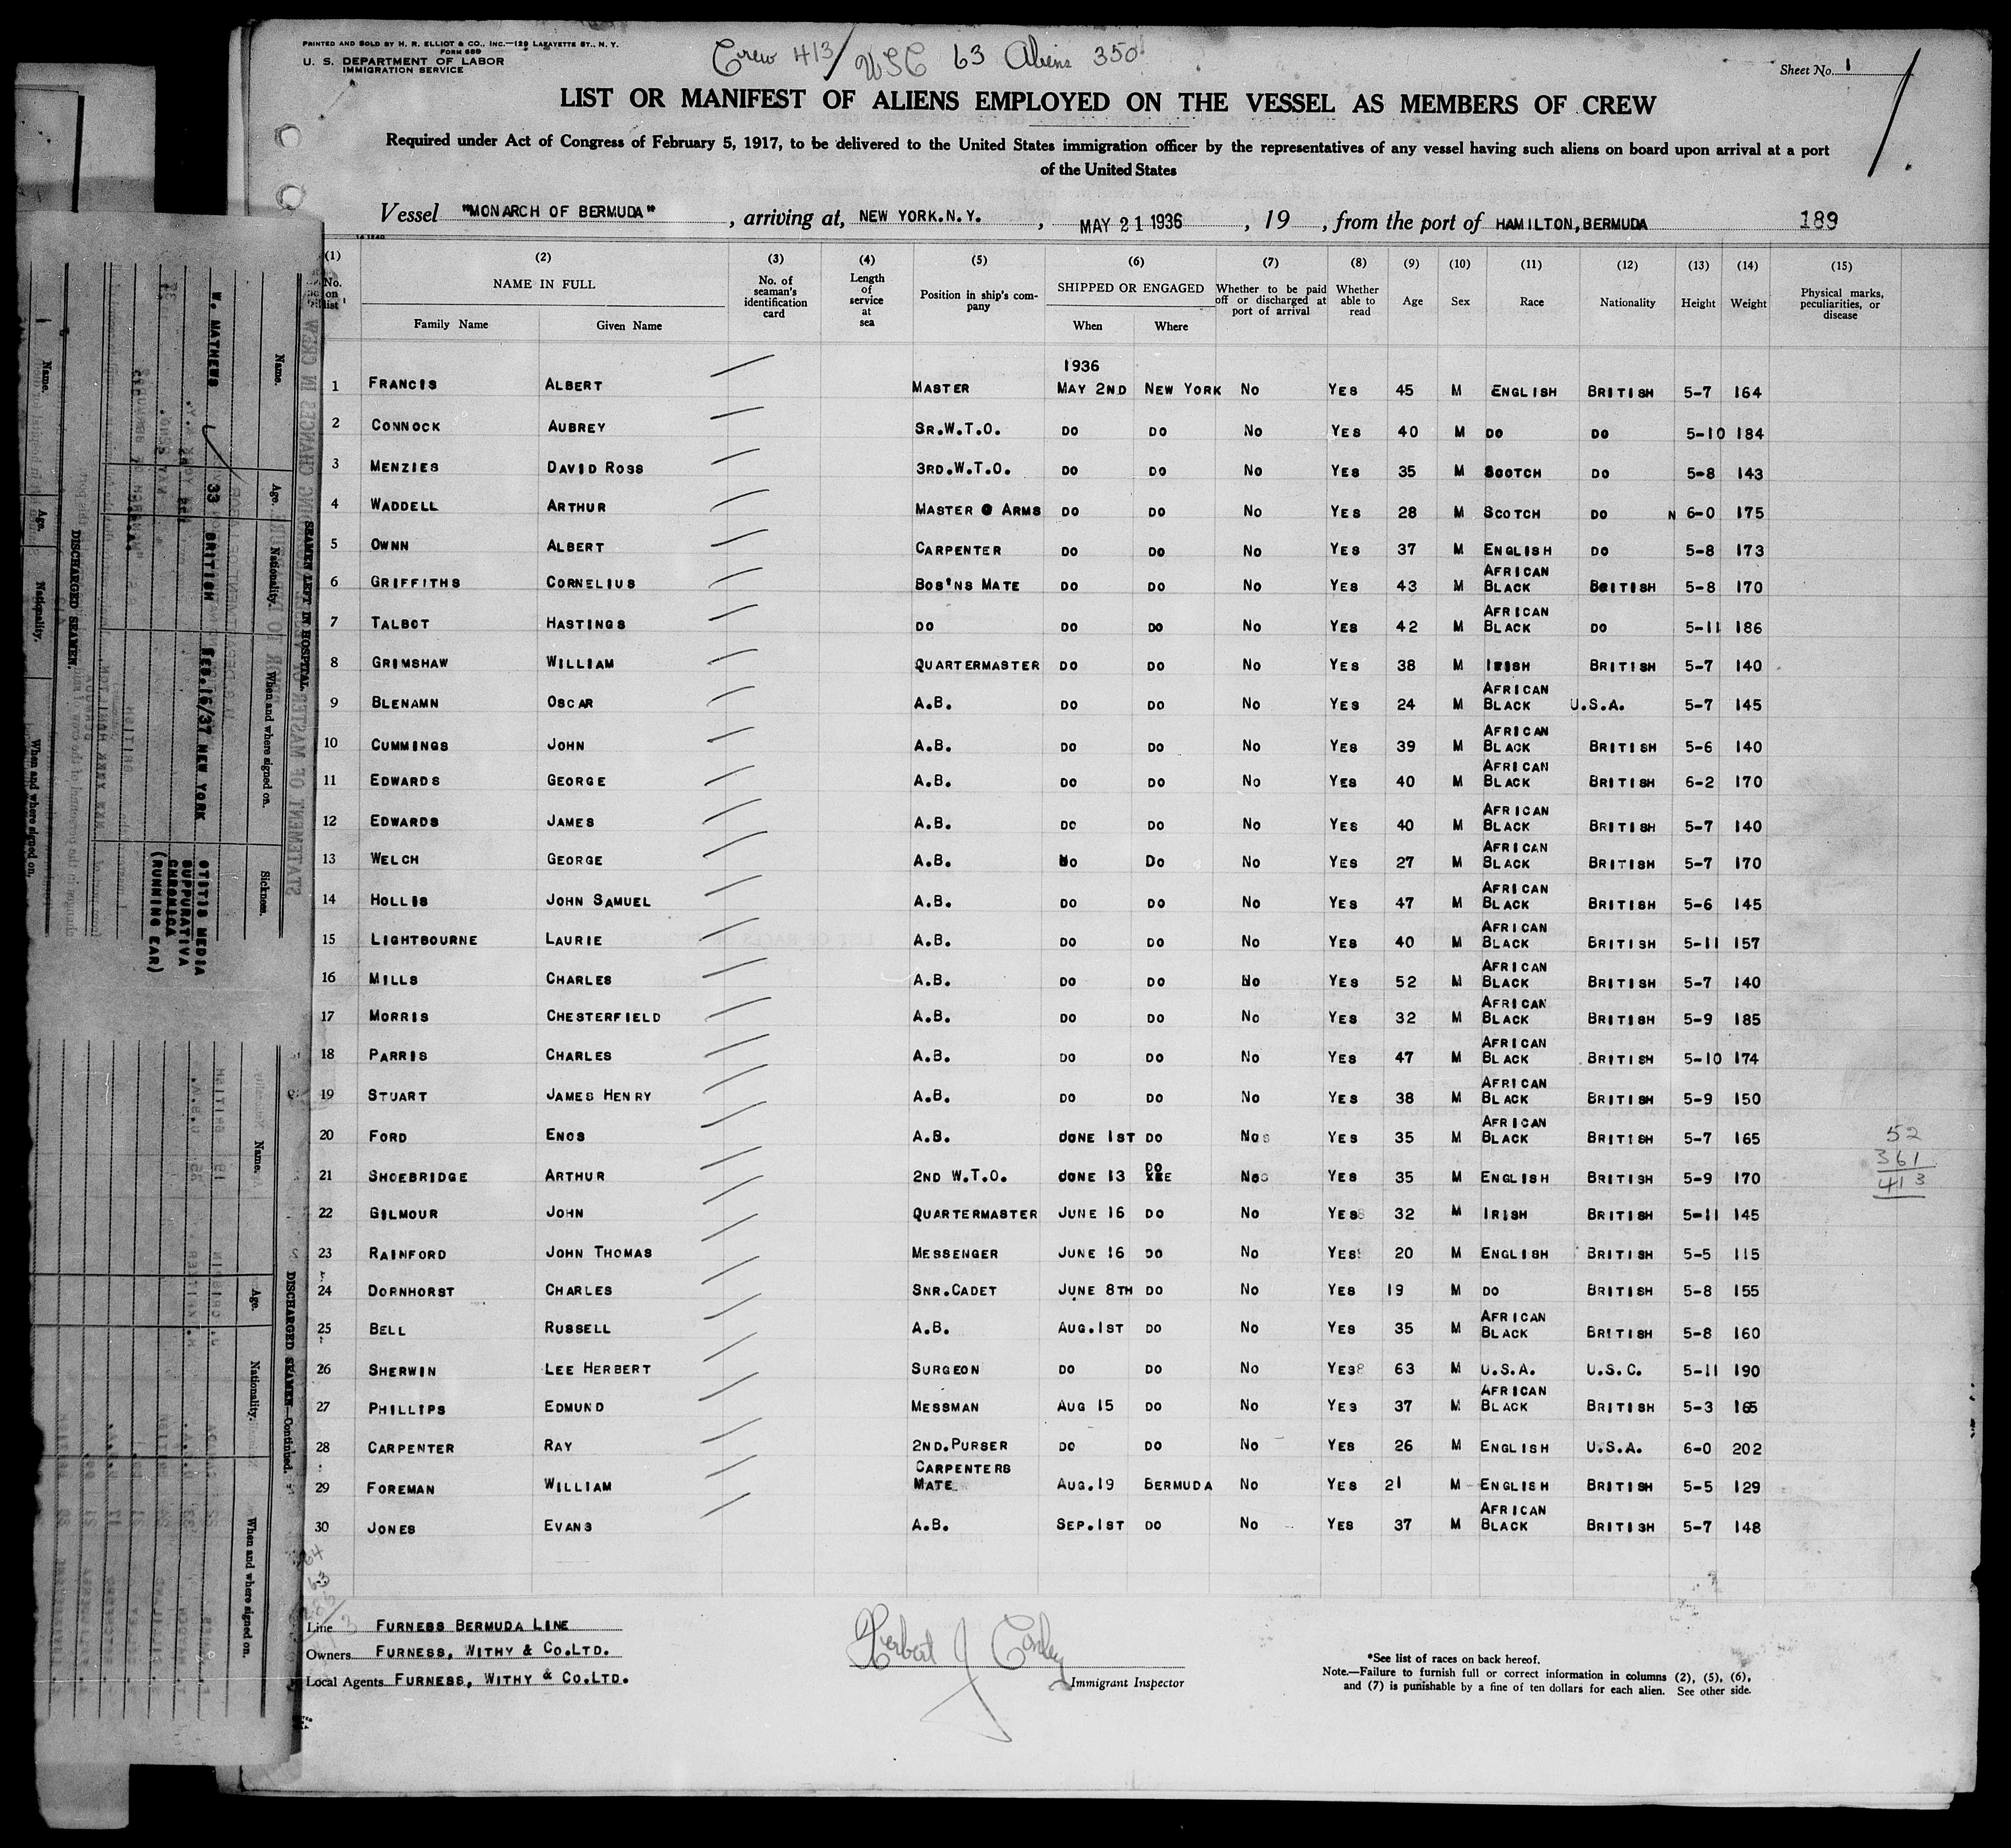 PRINTED AND SOLD BY H. R. ELLIOT & CO., INC.—129 LAFAYETTE ST., N. Y.
FORM 689
U. S. DEPARTMENT OF LABOR
IMMIGRATION SERVICE
Crew 413 / USC 63 Aliens 350
Sheet No. 1
LIST OR MANIFEST OF ALIENS EMPLOYED ON THE VESSEL AS MEMBERS OF CREW
Required under Act of Congress of February 5, 1917, to be delivered to the United States immigration officer by the representatives of any vessel having such aliens on board upon arrival at a port
of the United States
Vessel "MONARCH OF BERMUDA", arriving at, NEW YORK.N.Y., MAY 21 1936, 19, from the port of HAMILTON, BERMUDA 189
(1) (2) (3) (4) (5) (6) (7) (8) (9) (10) (11) (12) (13) (14) (15)
No. on list
NAME IN FULL
Family Name Given Name
No. of seaman's identification card
Length of service at sea
Position in ship's company
SHIPPED OR ENGAGED
When Where
Whether to be paid off or discharged at port of arrival
Whether able to read
Age Sex Race Nationality Height Weight
Physical marks, peculiarities, or disease
1936
1 FRANCIS ALBERT MASTER MAY 2ND NEW YORK NO YES 45 M ENGLISH BRITISH 5-7 164
2 CONNOCK AUBREY SR.W.T.O. DO DO NO YES 40 M DO DO 5-10 184
3 MENZIES DAVID ROSS 3RD.W.T.O. DO DO NO YES 35 M SCOTCH DO 5-8 143
4 WADDELL ARTHUR MASTER @ ARMS DO DO NO YES 28 M SCOTCH DO N 6-0 175
5 OWNN ALBERT CARPENTER DO DO NO YES 37 M ENGLISH DO 5-8 173
6 GRIFFITHS CORNELIUS BOS'NS MATE DO DO NO YES 43 M AFRICAN BLACK BRITISH 5-8 170
7 TALBOT HASTINGS DO DO DO NO YES 42 M AFRICAN BLACK DO 5-11 186
8 GRIMSHAW WILLIAM QUARTERMASTER DO DO NO YES 38 M IRISH BRITISH 5-7 140
9 BLENAMN OSCAR A.B. DO DO NO YES 24 M AFRICAN BLACK U.S.A. 5-7 145
10 CUMMINGS JOHN A.B. DO DO NO YES 39 M AFRICAN BLACK BRITISH 5-6 140
11 EDWARDS GEORGE A.B. DO DO NO YES 40 M AFRICAN BLACK BRITISH 6-2 170
12 EDWARDS JAMES A.B. DO DO NO YES 40 M AFRICAN BLACK BRITISH 5-7 140
13 WELCH GEORGE A.B. DO DO NO YES 27 M AFRICAN BLACK BRITISH 5-7 170
14 HOLLIS JOHN SAMUEL A.B. DO DO NO YES 47 M AFRICAN BLACK BRITISH 5-6 145
15 LIGHTBOURNE LAURIE A.B. DO DO NO YES 40 M AFRICAN BLACK BRITISH 5-11 157
16 MILLS CHARLES A.B. DO DO NO YES 52 M AFRICAN BLACK BRITISH 5-7 140
17 MORRIS CHESTERFIELD A.B. DO DO NO YES 32 M AFRICAN BLACK BRITISH 5-9 185
18 PARRIS CHARLES A.B. DO DO NO YES 47 M AFRICAN BLACK BRITISH 5-10 174
19 STUART JAMES HENRY A.B. DO DO NO YES 38 M AFRICAN BLACK BRITISH 5-9 150
20 FORD ENOS A.B. JUNE 1ST DO NO YES 35 M AFRICAN BLACK BRITISH 5-7 165
21 SHOEBRIDGE ARTHUR 2ND W.T.O. JUNE 13 DO NO YES 35 M ENGLISH BRITISH 5-9 170
22 GILMOUR JOHN QUARTERMASTER JUNE 16 DO NO YES 32 M IRISH BRITISH 5-11 145
23 RAINFORD JOHN THOMAS MESSENGER JUNE 16 DO NO YES 20 M ENGLISH BRITISH 5-5 115
24 DORNHORST CHARLES SNR.CADET JUNE 8TH DO NO YES 19 M DO BRITISH 5-8 155
25 BELL RUSSELL A.B. AUG.1ST DO NO YES 35 M AFRICAN BLACK BRITISH 5-8 160
26 SHERWIN LEE HERBERT SURGEON DO DO NO YES 63 M U.S.A. U.S.C. 5-11 190
27 PHILLIPS EDMUND MESSMAN AUG 15 DO NO YES 37 M AFRICAN BLACK BRITISH 5-3 165
28 CARPENTER RAY 2ND.PURSER DO DO NO YES 26 M ENGLISH U.S.A. 6-0 202
29 FOREMAN WILLIAM CARPENTERS MATE AUG.19 BERMUDA NO YES 21 M ENGLISH BRITISH 5-5 129
30 JONES EVANS A.B. SEP.1ST DO NO YES 37 M AFRICAN BLACK BRITISH 5-7 148
52
361
413
Line FURNESS BERMUDA LINE
Owners FURNESS, WITHY & CO.LTD.
Local Agents FURNESS, WITHY & CO.LTD.
Herbert J Conley
Immigrant Inspector
*See list of races on back hereof.
Note.—Failure to furnish full or correct information in columns (2), (5), (6),
and (7) is punishable by a fine of ten dollars for each alien. See other side.
SEAMEN LEFT IN HOSPITAL.
Name. Age. Nationality. When and where signed on. Sickness.
W. MATHEWS 33 BRITISH FEB.16/37 NEW YORK OTITIS MEDIA
SUPPURATIVA
CHRONICA
(RUNNING EAR)
DISCHARGED SEAMEN.
Name. Age. Nationality. When and where signed on.
DISCHARGED SEAMEN—Continued.
Name. Age. Nationality. When and where signed on.
STATEMENT OF MASTER